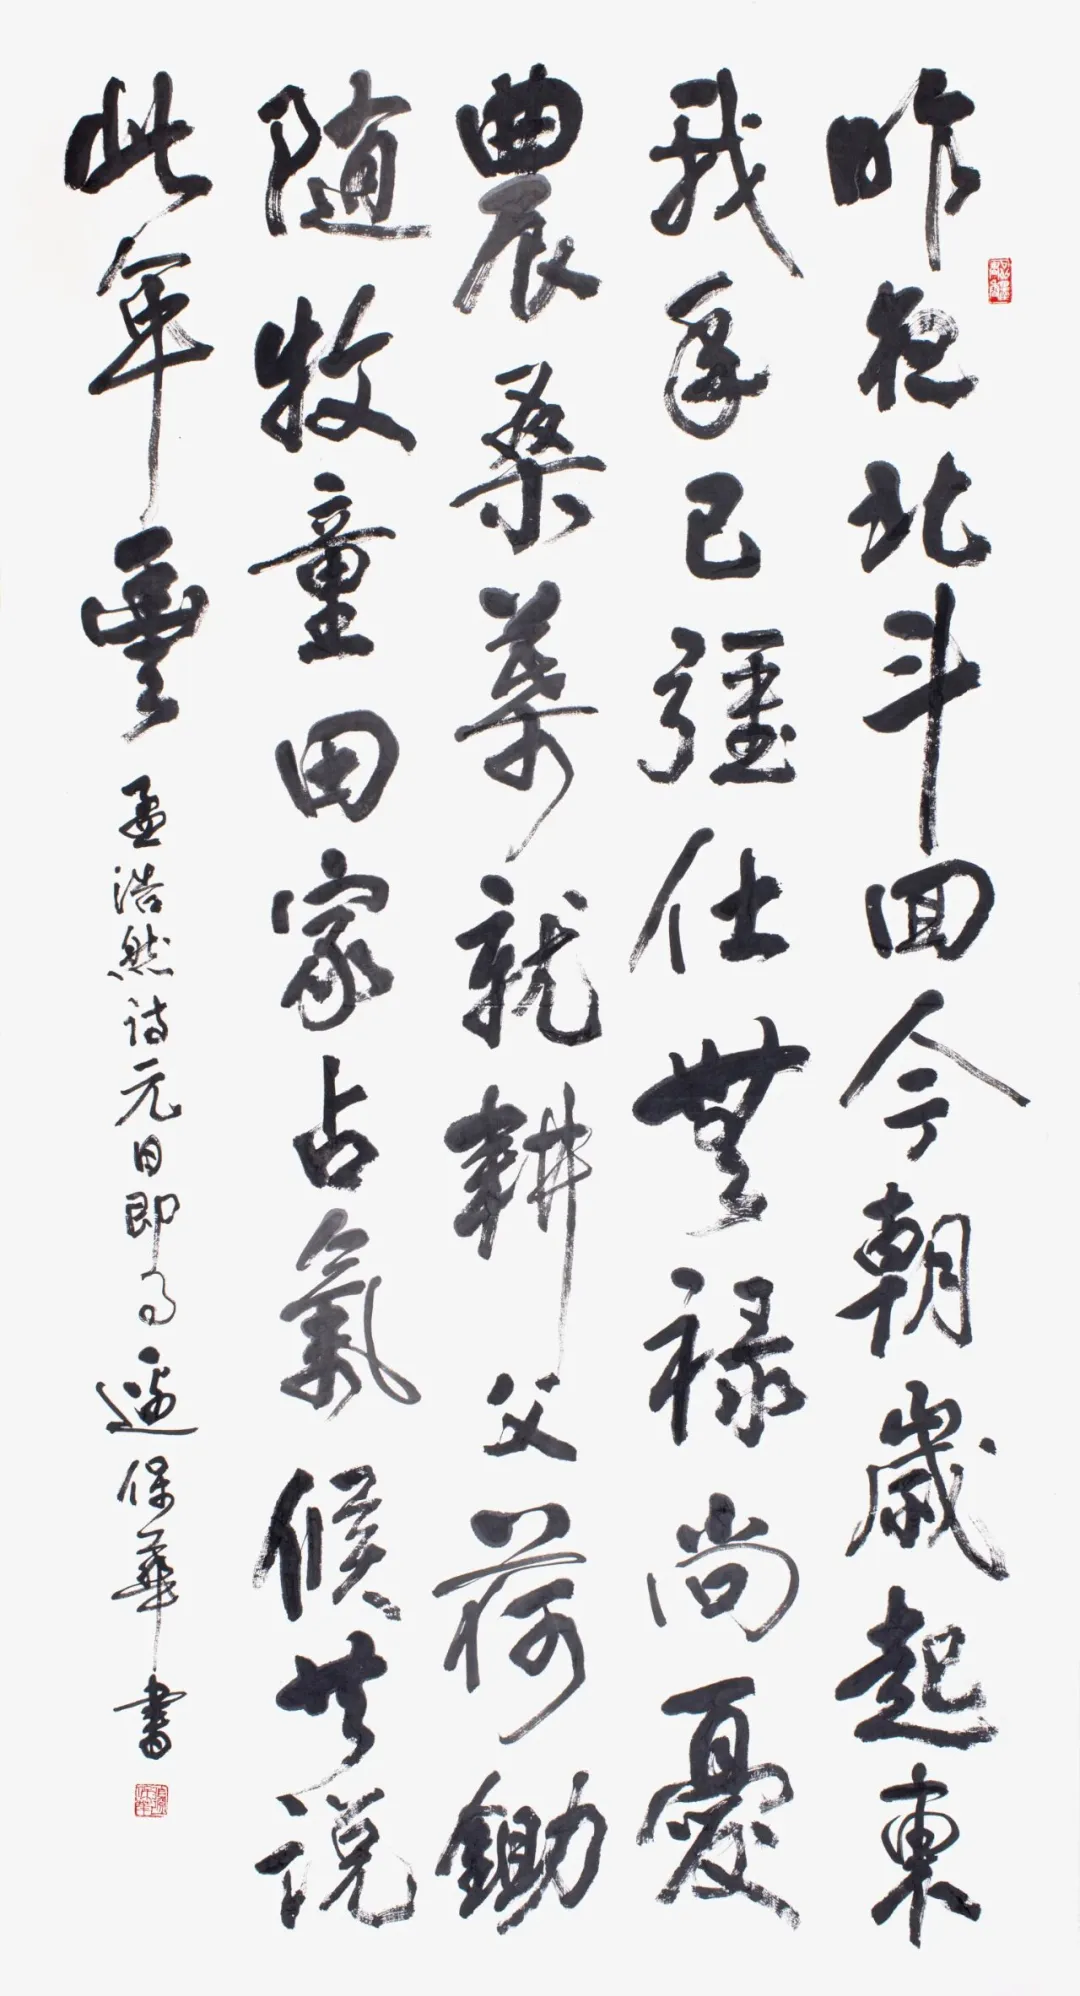 昨夜北斗回今朝歲起東
我年已彊仕無祿尚憂
農桑葉就耕父荷鋤
隨牧童田家占氣候共説
此年豐
孟浩然詩元日即事 保華書